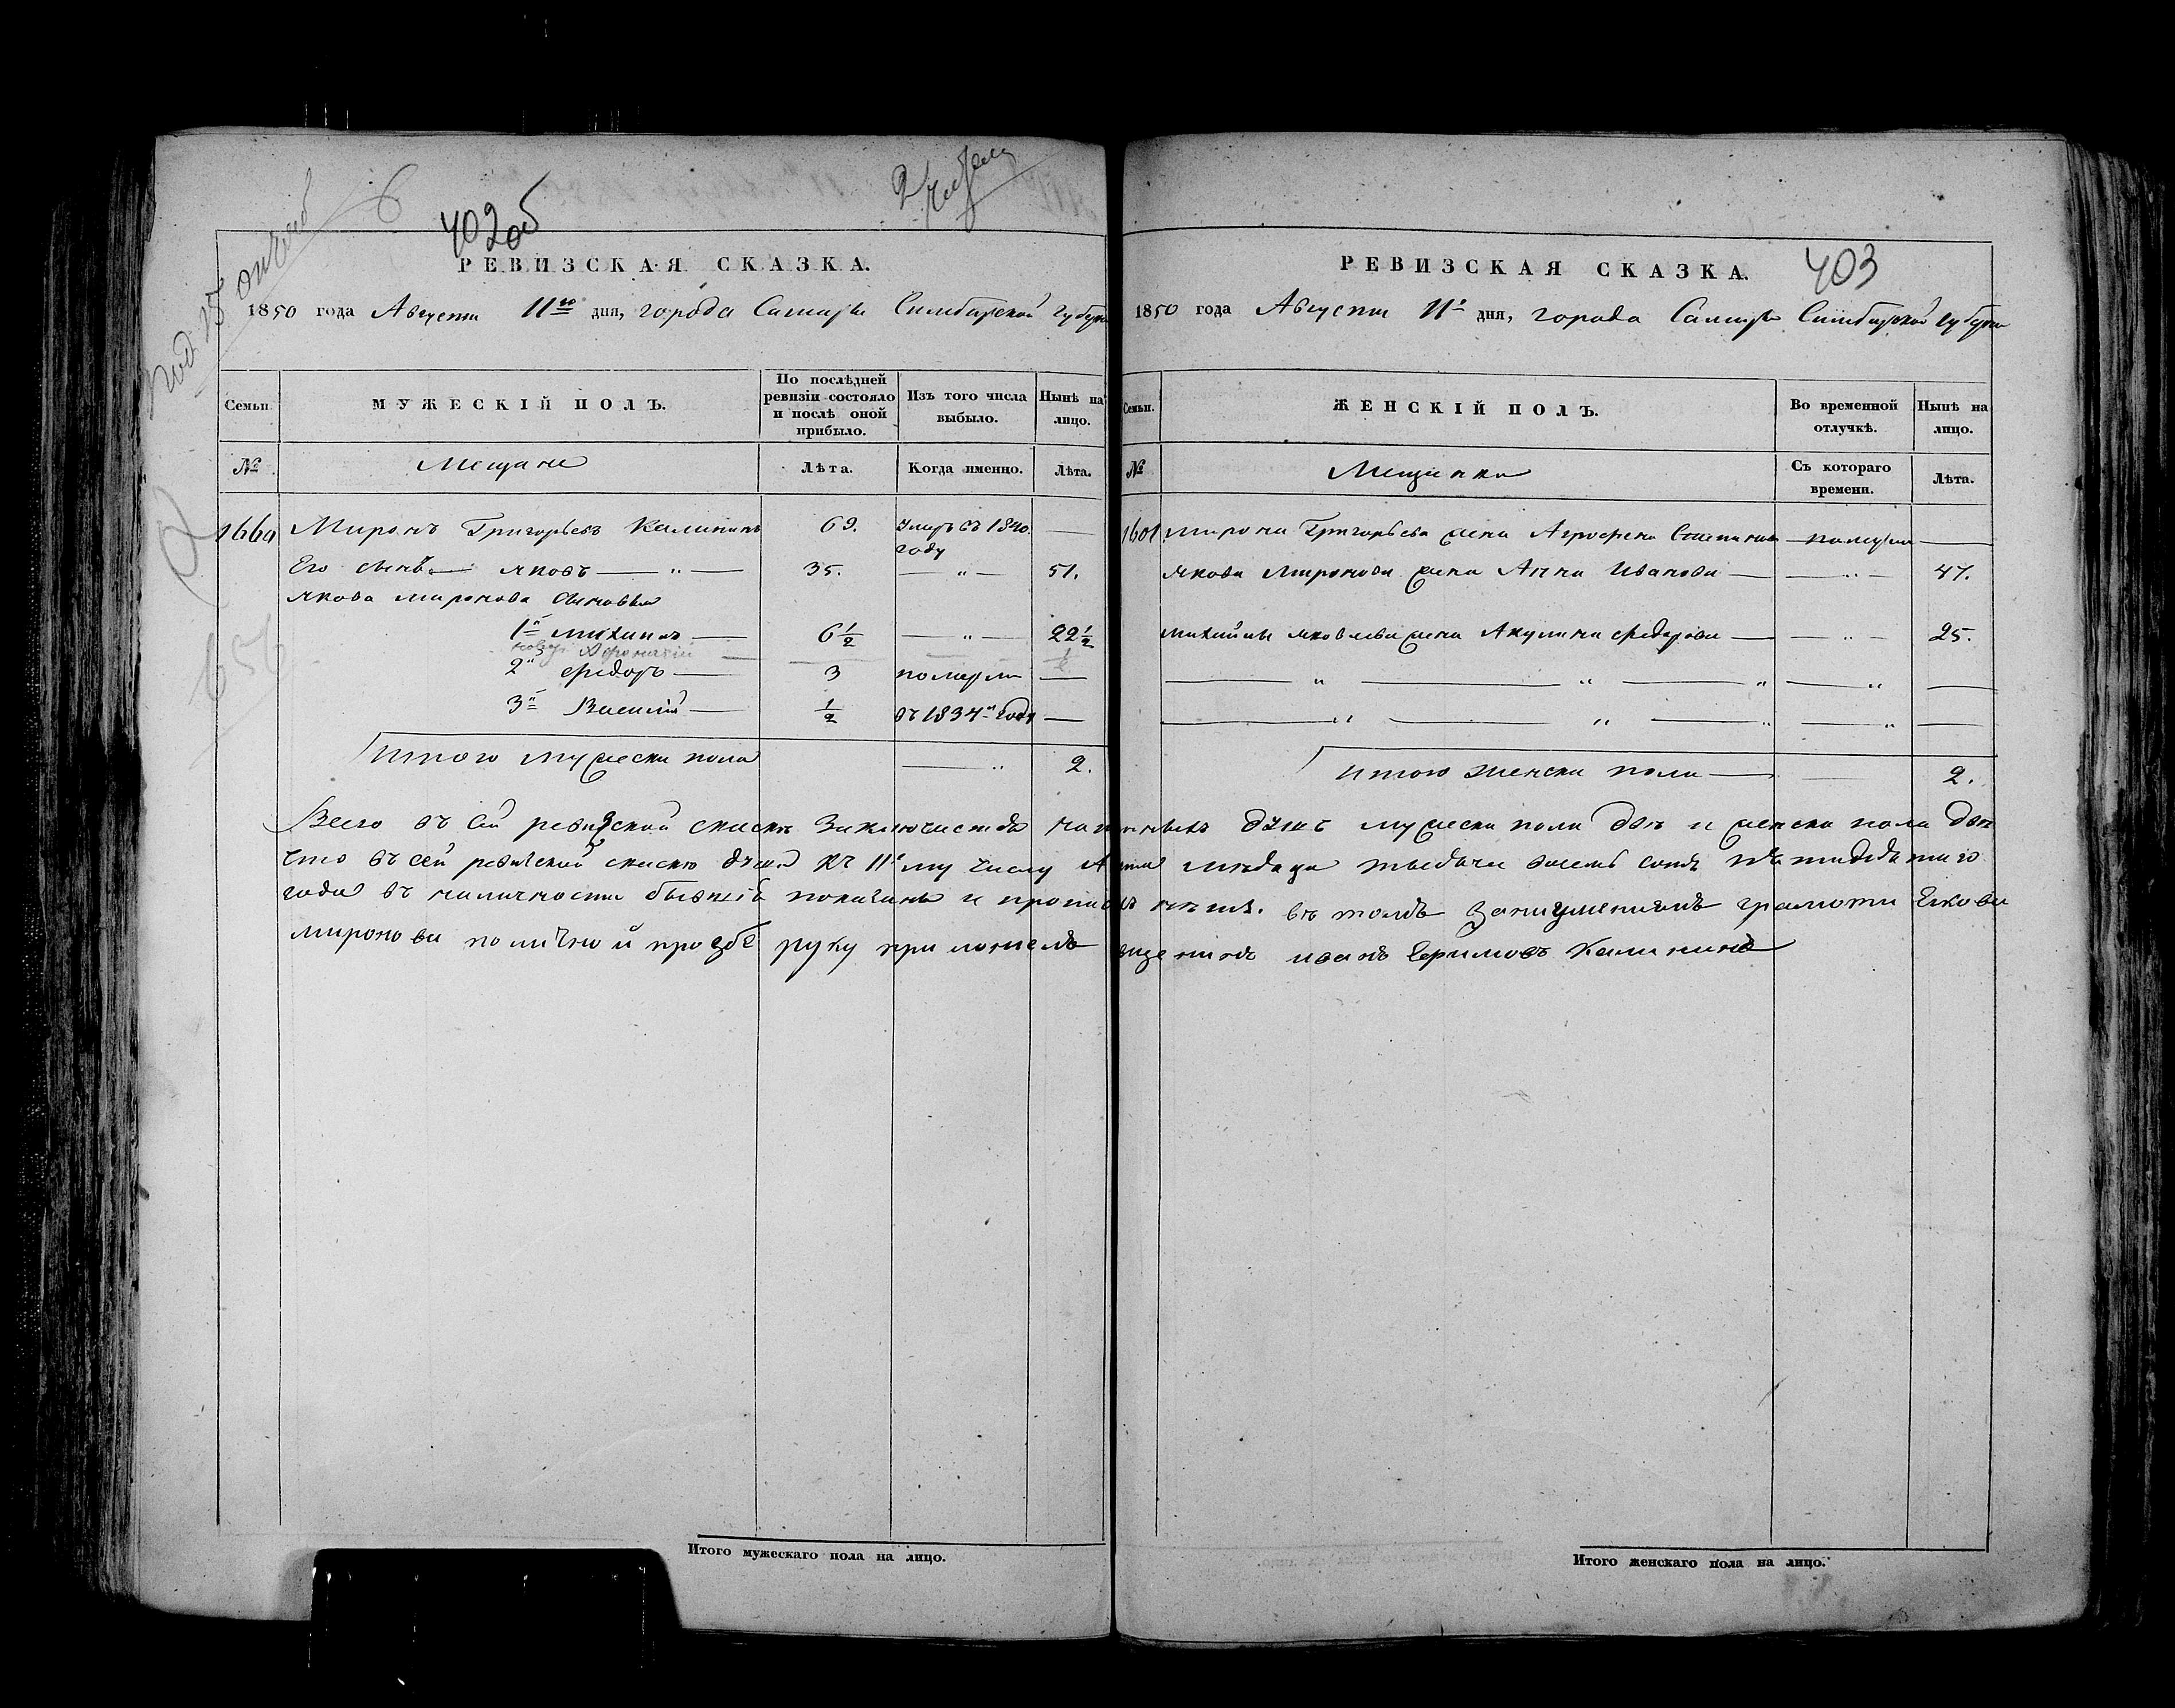 402об
РЕВИЗСКАЯ СКАЗКА.
1850 года Августа 11го дня, города Самары Симбирской губерн
Семьи
МУЖЕСКІЙ ПОЛЪ.
По послѣдней ревизіи состояло и послѣ оной прибыло.
Изъ того числа выбыло.
Нынѣ на лицо.
№
Мещане
Лѣта.
Когда именно.
Лѣта.
1660 Миронъ Григорьевъ Калининъ 69. Умеръ въ 1840. году —
Его сынъ — яковъ — „ — 35. — „ — 51.
якова миронова сыновья
1й михаилъ — 6 1/2 — „ — 22 1/2
Афонасій 1/2
2й федоръ — 3 померли —
3й Василій — 1/2 въ 1834м году —
Итого мужеска пола — „ 2.
403
РЕВИЗСКАЯ СКАЗКА.
1850 года Августа 11го дня, города Самары Симбирской губерн
Семьи.
ЖЕНСКІЙ ПОЛЪ.
Во временной отлучкѣ.
Нынѣ на лицо.
№
Мещанки
Съ котораго времени.
Лѣта.
1601 мирона Григорьева жена Агрофена Степанова — померла —
якова миронова жена Анна Иванова — — „ — 47.
михайлы яковлева жена Акулина федорова — — „ — 25.
— „ — „ — „ — „ —
— „ — „ — „ — „ —
итого женска пола — 2.
Всего въ сей ревизской сказке заключаетъ наличныхъ душъ мужеска пола две и женска пола две
что въ сей ревизской сказке души къ 11му числу Августа месеца тысяча восемь сотъ пятидесятаго
года въ наличности бывшiя показаны и прописныхъ нетъ. въ томъ занеуменiямъ грамоти Якова
миронова по личной прозбе руку приложелъ мещенинъ иванъ Ефимовъ Калининъ
Итого мужескаго пола на лицо.
Итого женскаго пола на лицо.